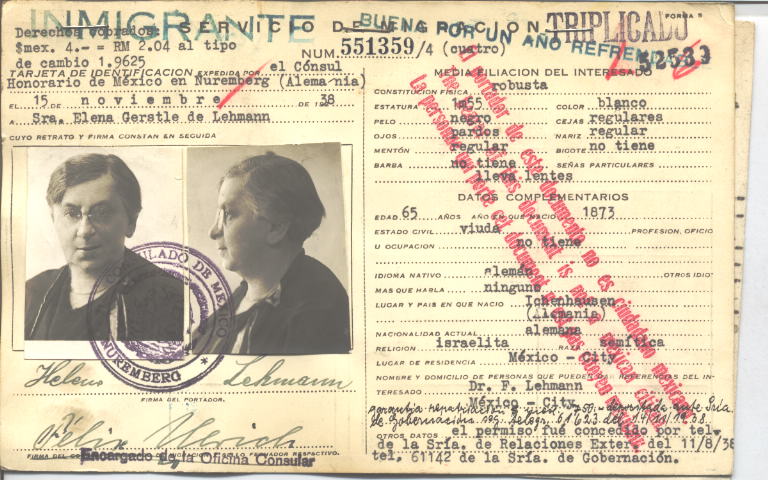 INMIGRANTE
SERVICIO DE MIGRACION
TRIPLICADO
FORMA 5
BUENA POR UN AÑO REFRENDA
52533
Derechos cobrados:
$mex. 4.- = RM 2.04 al tipo
de cambio 1.9625
NUM. 551359/4 (cuatro)
TARJETA DE IDENTIFICACION EXPEDIDA POR el Cónsul
Honorario de México en Nuremberg (Alemania)
EL 15 DE noviembre DE 1938
A Sra. Elena Gerstle de Lehmann
CUYO RETRATO Y FIRMA CONSTAN EN SEGUIDA
CONSULADO DE MEXICO
NUREMBERG
Helene Lehmann
FIRMA DEL PORTADOR.
Encargado de la Oficina Consular
MEDIA FILIACION DEL INTERESADO
CONSTITUCION FISICA robusta
ESTATURA 1m55 COLOR blanco
PELO negro CEJAS regulares
OJOS pardos NARIZ regular
MENTÓN regular BIGOTE no tiene
BARBA no tiene SEÑAS PARTICULARES
lleva lentes
DATOS COMPLEMENTARIOS
EDAD 65 AÑOS AÑO EN QUE NACIO 1873
ESTADO CIVIL viuda PROFESION, OFICIO
U OCUPACION no tiene
IDIOMA NATIVO alemán OTROS IDIO-
MAS QUE HABLA ninguno
LUGAR Y PAIS EN QUE NACIO Ichenhausen
(Alemania)
NACIONALIDAD ACTUAL alemana
RELIGION israelita RAZA semítica
LUGAR DE RESIDENCIA México - City
NOMBRE Y DOMICILIO DE PERSONAS QUE PUEDEN DAR REFERENCIAS DEL IN-
TERESADO Dr. F. Lehmann
México - City
OTROS DATOS el permiso fué concedido por tel.
de la Sría. de Relaciones Exter. del 11/8/38
tel. 61142 de la Sría. de Gobernación.
El portador de este documento no es ciudadano mexicano